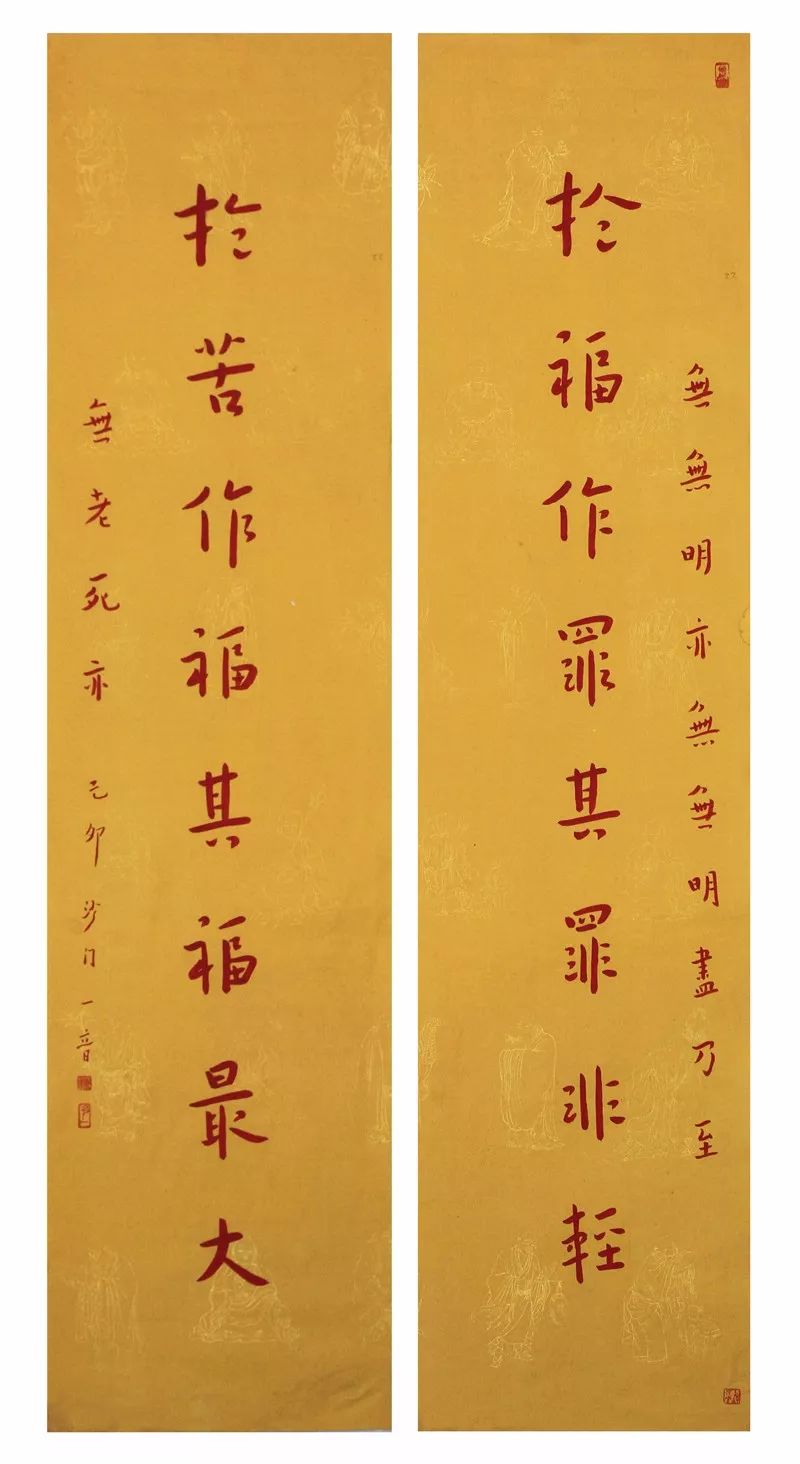 無無明亦無無明盡乃至
於福作罪其罪非輕
於苦作福其福最大
無老死亦
己卯沙门一音